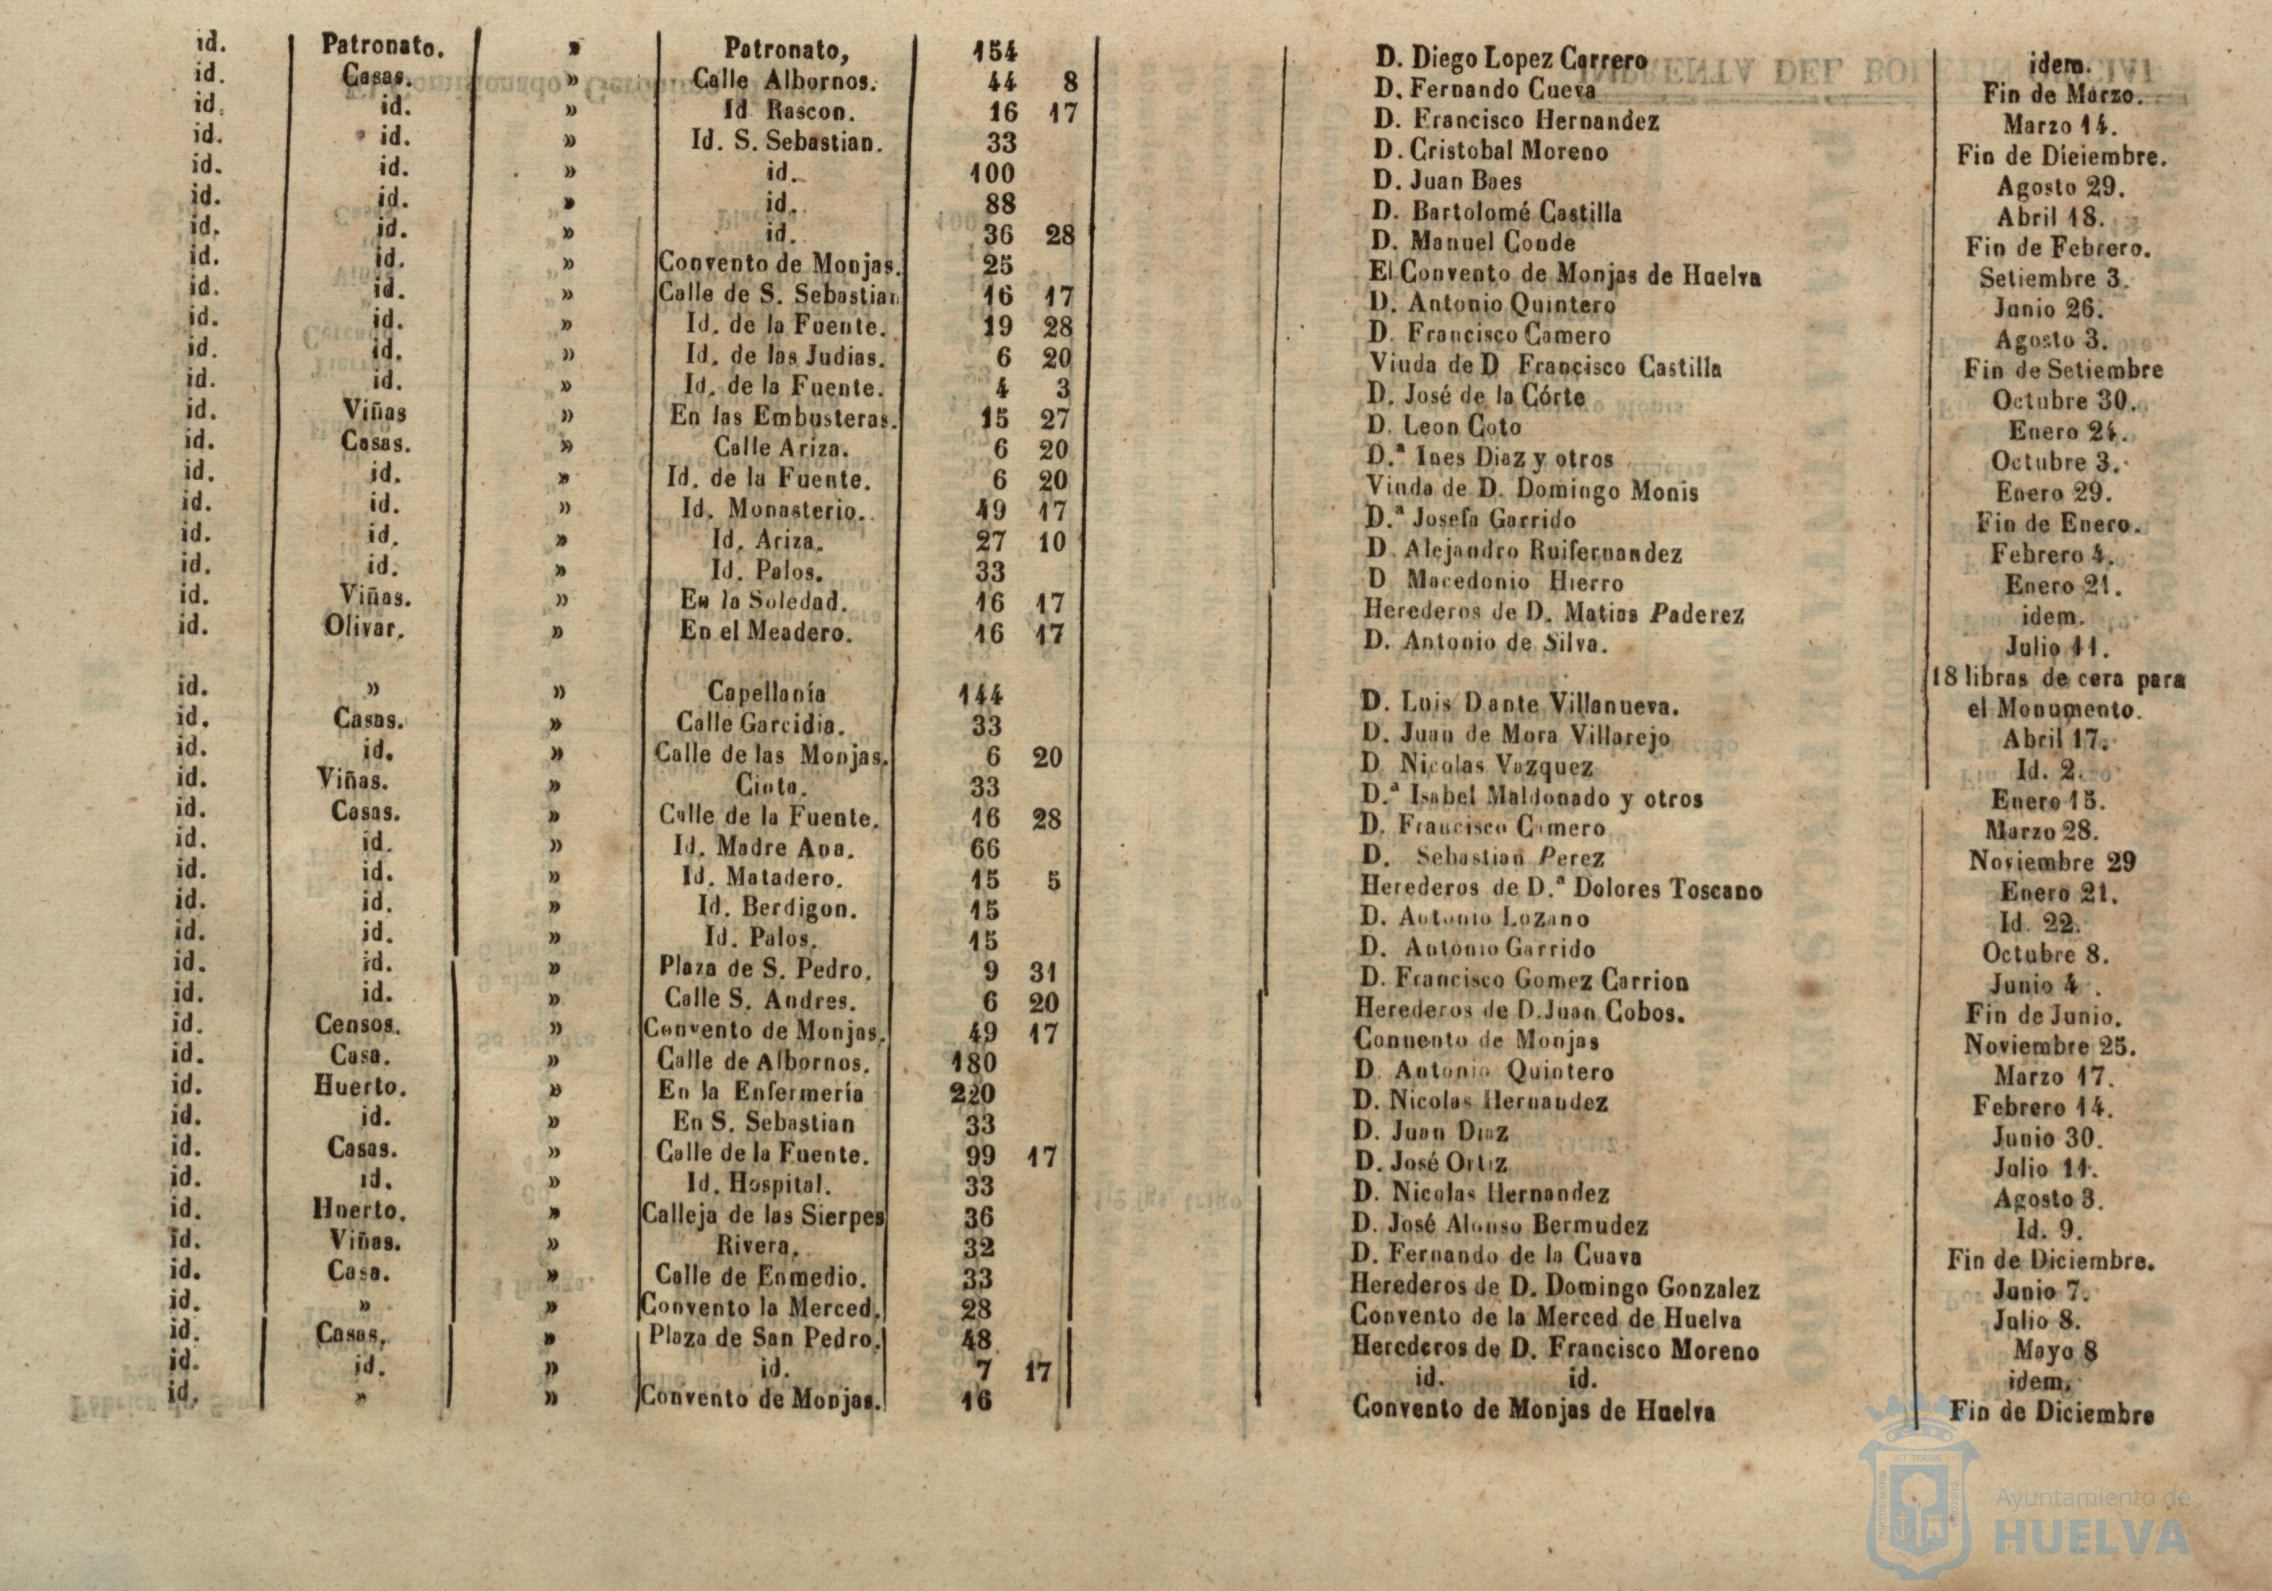 id. Patronato. » Patronato, 154 D. Diego Lopez Carrero idem.
id. Casas. » Calle Albornos. 44 8 D. Fernando Cueva Fin de Marzo.
id. id. » Id Rascon. 16 17 D. Francisco Hernandez Marzo 14.
id. id. » Id. S. Sebastian. 33 D. Cristobal Moreno Fin de Dieiembre.
id. id. » id. 100 D. Juan Baes Agosto 29.
id. id. » id. 88 D. Bartolomé Castilla Abril 18.
id. id. » id. 36 28 D. Manuel Conde Fin de Febrero.
id. id. » Convento de Monjas. 25 El Convento de Monjas de Huelva Setiembre 3.
id. id. » Calle de S. Sebastian 16 17 D. Antonio Quintero Junio 26.
id. id. » Id. de la Fuente. 19 28 D. Francisco Camero Agosto 3.
id. id. » Id. de las Judias. 6 20 Viuda de D Francisco Castilla Fin de Setiembre
id. id. » Id. de la Fuente. 4 3 D. José de la Córte Octubre 30.
id. Viñas » En las Embusteras. 15 27 D. Leon Coto Enero 24.
id. Casas. » Calle Ariza. 6 20 D.ª Ines Diaz y otros Octubre 3.
id. id. » Id. de la Fuente. 6 20 Viuda de D. Domingo Monis Enero 29.
id. id. » Id. Monasterio. 49 17 D.ª Josefa Garrido Fin de Enero.
id. id. » Id. Ariza. 27 10 D. Alejandro Ruifernandez Febrero 4.
id. id. » Id. Palos. 33 D Macedonio Hierro Enero 21.
id. Viñas. » En la Soledad. 16 17 Herederos de D. Matias Paderez idem.
id. Olivar. » En el Meadero. 16 17 D. Antonio de Silva. Julio 11.
18 libras de cera para
id. » » Capellanía 144 D. Luis Dante Villanueva. el Monumento.
id. Casas. » Calle Garcidia. 33 D. Juan de Mora Villarejo Abril 17.
id. id. » Calle de las Monjas. 6 20 D. Nicolas Vazquez Id. 2.
id. Viñas. » Cinta. 33 D.ª Isabel Maldonado y otros Enero 15.
id. Casas. » Calle de la Fuente. 16 28 D. Francisco Camero Marzo 28.
id. id. » Id. Madre Ana. 66 D. Sebastian Perez Noviembre 29
id. id. » Id. Matadero. 15 5 Herederos de D.ª Dolores Toscano Enero 21.
id. id. » Id. Berdigon. 15 D. Antonio Lozano Id. 22.
id. id. » Id. Palos. 15 D. Antonio Garrido Octubre 8.
id. id. » Plaza de S. Pedro. 9 31 D. Francisco Gomez Carrion Junio 4.
id. id. » Calle S. Andres. 6 20 Herederos de D. Juan Cobos. Fin de Junio.
id. Censos. » Convento de Monjas. 49 17 Conuento de Monjas Noviembre 25.
id. Casa. » Calle de Albornos. 180 D. Antonio Quintero Marzo 17.
id. Huerto. » En la Enfermería 220 D. Nicolas Hernandez Febrero 14.
id. id. » En S. Sebastian 33 D. Juan Diaz Junio 30.
id. Casas. » Calle de la Fuente. 99 17 D. José Ortiz Julio 11.
id. id. » Id. Hospital. 33 D. Nicolas Hernandez Agosto 3.
id. Huerto. » Calleja de las Sierpes 36 D. José Alonso Bermudez Id. 9.
id. Viñas. » Rivera. 32 D. Fernando de la Cuava Fin de Diciembre.
id. Casa. » Calle de Enmedio. 33 Herederos de D. Domingo Gonzalez Junio 7.
id. » » Convento la Merced. 28 Convento de la Merced de Huelva Julio 8.
id. Casas. » Plaza de San Pedro. 48 Herederos de D. Francisco Moreno Mayo 8
id. id. » id. 7 17 id. id. idem.
id. » » Convento de Monjas. 16 Convento de Monjas de Huelva Fin de Diciembre
Ayuntamiento de
HUELVA